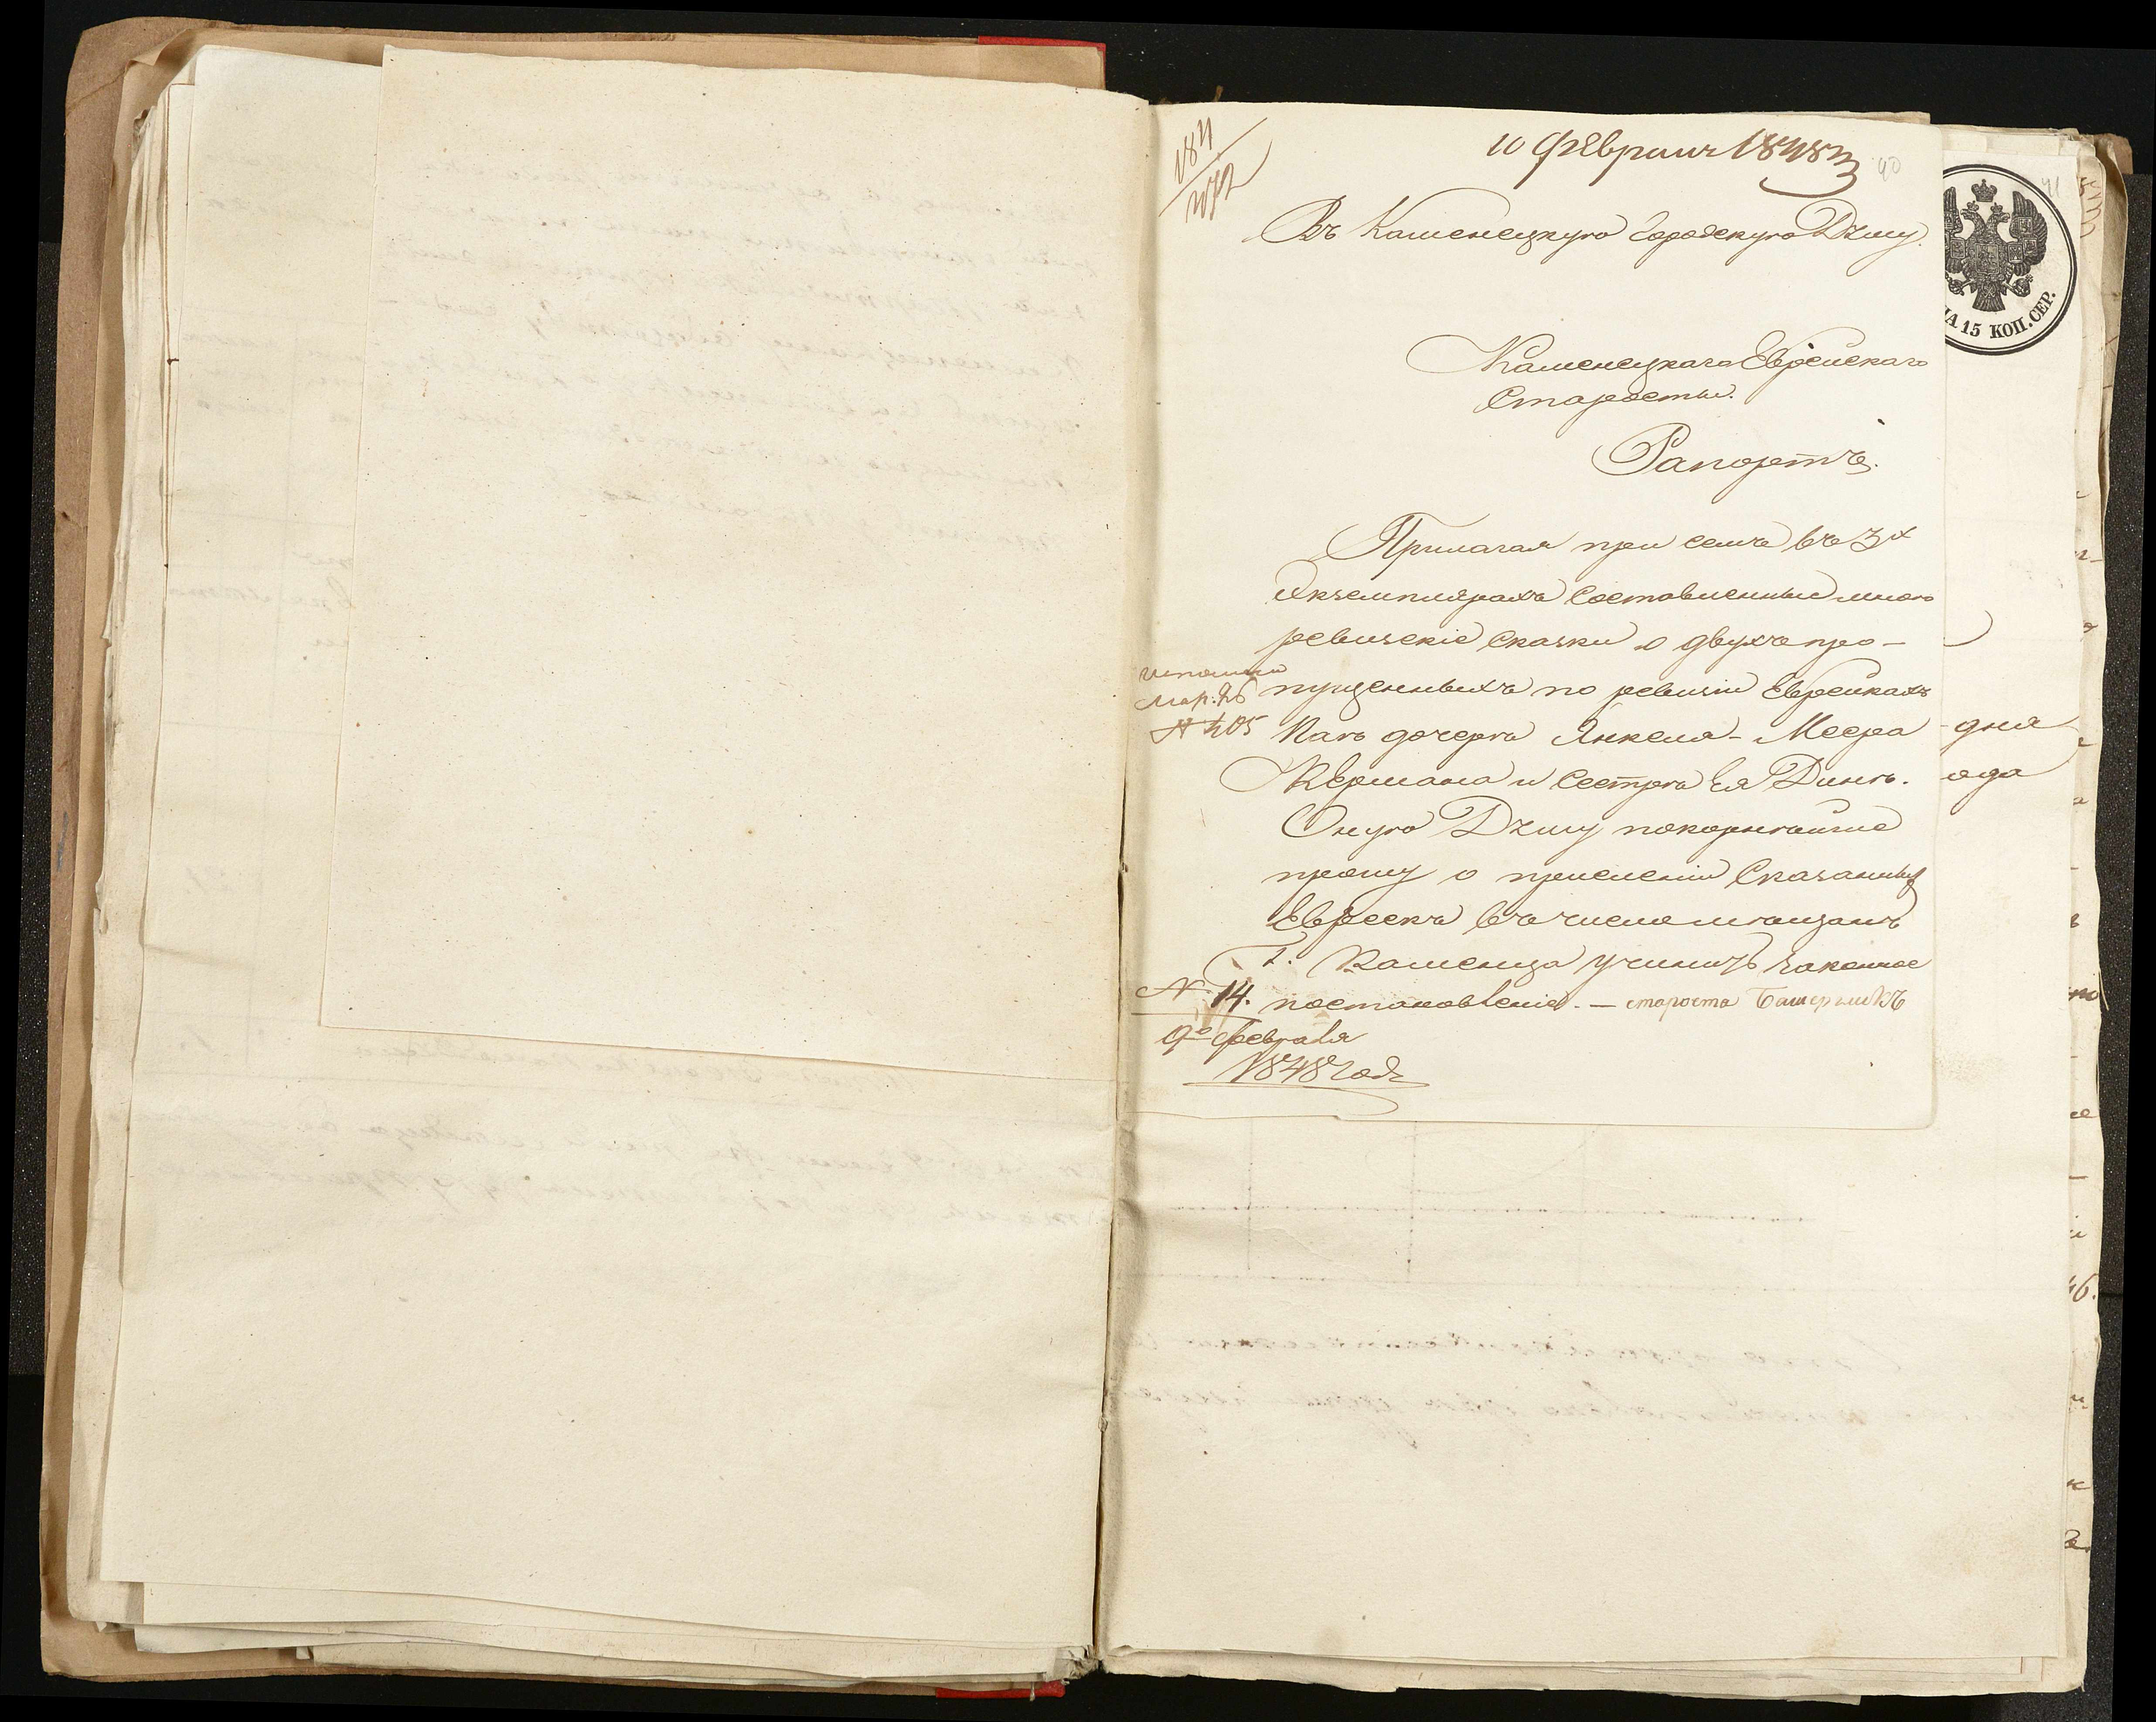 184
10 Февраля 1848
90
Въ Каменецкую Городскую Думу.
Каменецкаго Еврейскаго
Старосты.
Рапортъ.
Прилагая при семъ въ 3х
Экземплярахъ Составленные мною
ревизскіе Сказки о двухъ про-
пущенныхъ по ревизіи Еврейкахъ
дочерѣ Янкеля-Меера
Кермана и Сестрѣ Ея Динѣ.
Оную Думу покорнѣйше
прошу о причисленіи Сказанных
Евреекъ въ число мѣщанъ
Г. Каменца учинить законное
постановленіе. — староста
Мар. 26
№ 405
№ 14.
9го февраля
1848 года
41
НА 15 КОП. СЕР.
дня
ода